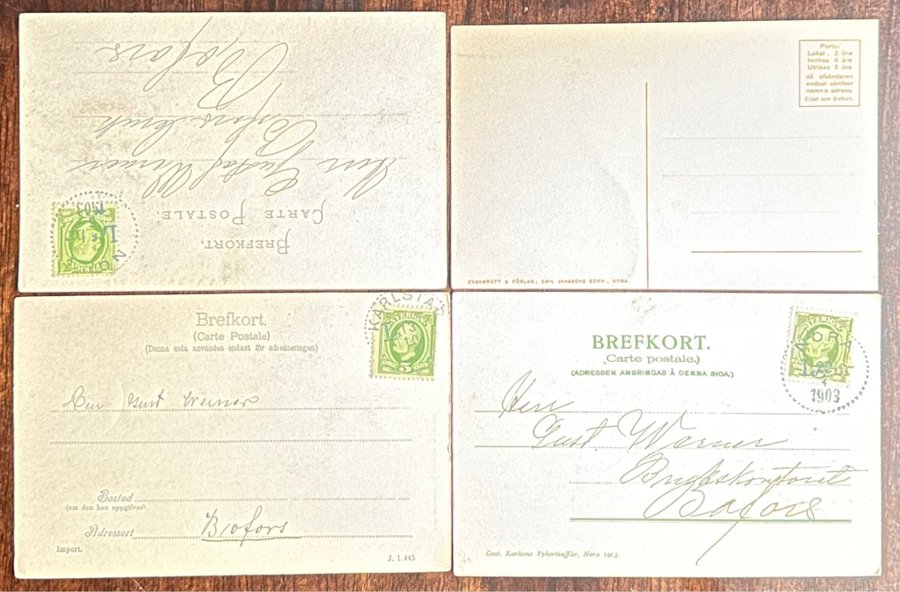 BREFKORT.
CARTE POSTALE.
Herr Gustaf Werner
Bofors bruk
Bofors
1903
Porto:
Lokal . 2 öre
Inrikes 4 öre
Utrikes 5 öre
då afsändaren
endast skrifver
namn o. adress.
Eljest som Brefkort.
ENSAMRÄTT & FÖRLAG, EMIL JANSSONS BOKH., NORA.
Brefkort.
(Carte Postale)
(Denna sida användes endast för adresseringen)
KARLSTAD
SVERIGE
5
ÖRE
Herr Gust Werner
Bostad
(om den kan uppgifvas)
Adressort
Bofors
Import.
J. 1.445
BREFKORT.
Carte postale.)
(ADRESSEN ANBRINGAS Å DENNA SIDA.)
SVERIGE
NORA
1903
Herr
Gust. Werner
Brukskontoret
Bofors
Gust. Karlsons Vykortsaffär, Nora 1903.